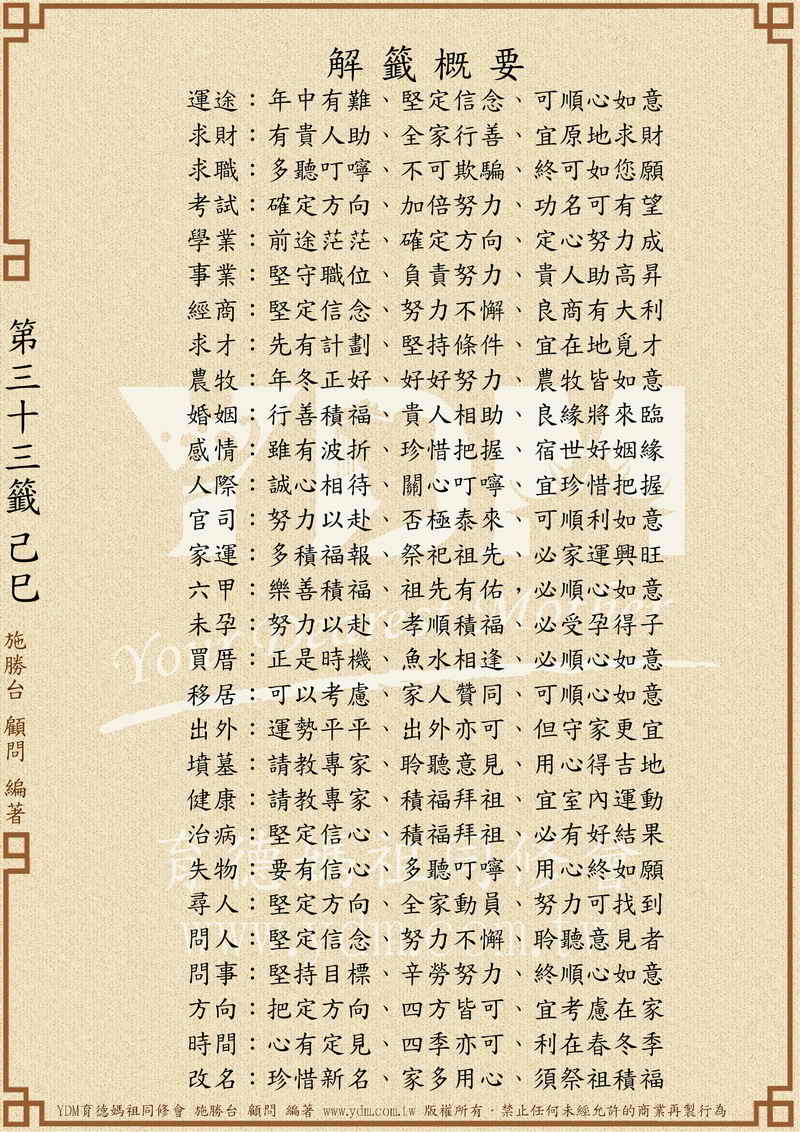 解籤概要
運途：年中有難、堅定信念、可順心如意
求財：有貴人助、全家行善、宜原地求財
求職：多聽叮嚀、不可欺騙、終可如您願
考試：確定方向、加倍努力、功名可有望
學業：前途茫茫、確定方向、定心努力成
事業：堅守職位、負責努力、貴人助高昇
經商：堅定信念、努力不懈、良商有大利
求才：先有計劃、堅持條件、宜在地覓才
農牧：年冬正好、好好努力、農牧皆如意
婚姻：行善積福、貴人相助、良緣將來臨
感情：雖有波折、珍惜把握、宿世好姻緣
人際：誠心相待、關心叮嚀、宜珍惜把握
官司：努力以赴、否極泰來、可順利如意
家運：多積福報、祭祀祖先、必家運興旺
六甲：樂善積福、祖先有佑，必順心如意
未孕：努力以赴、孝順積福、必受孕得子
買厝：正是時機、魚水相逢、必順心如意
移居：可以考慮、家人贊同、可順心如意
出外：運勢平平、出外亦可、但守家更宜
墳墓：請教專家、聆聽意見、用心得吉地
健康：請教專家、積福拜祖、宜室內運動
治病：堅定信心、積福拜祖、必有好結果
失物：要有信心、多聽叮嚀、用心終如願
尋人：堅定方向、全家動員、努力可找到
問人：堅定信念、努力不懈、聆聽意見者
問事：堅持目標、辛勞努力、終順心如意
方向：把定方向、四方皆可、宜考慮在家
時間：心有定見、四季亦可、利在春冬季
改名：珍惜新名、家多用心、須祭祖積福
第三十三籤 己巳
施勝台 顧問 編著
YDM
Your Dearest Mother
育德媽祖同修會
www.ydm.com.tw
YDM育德媽祖同修會 施勝台 顧問 編著 www.ydm.com.tw 版權所有．禁止任何未經允許的商業再製行為